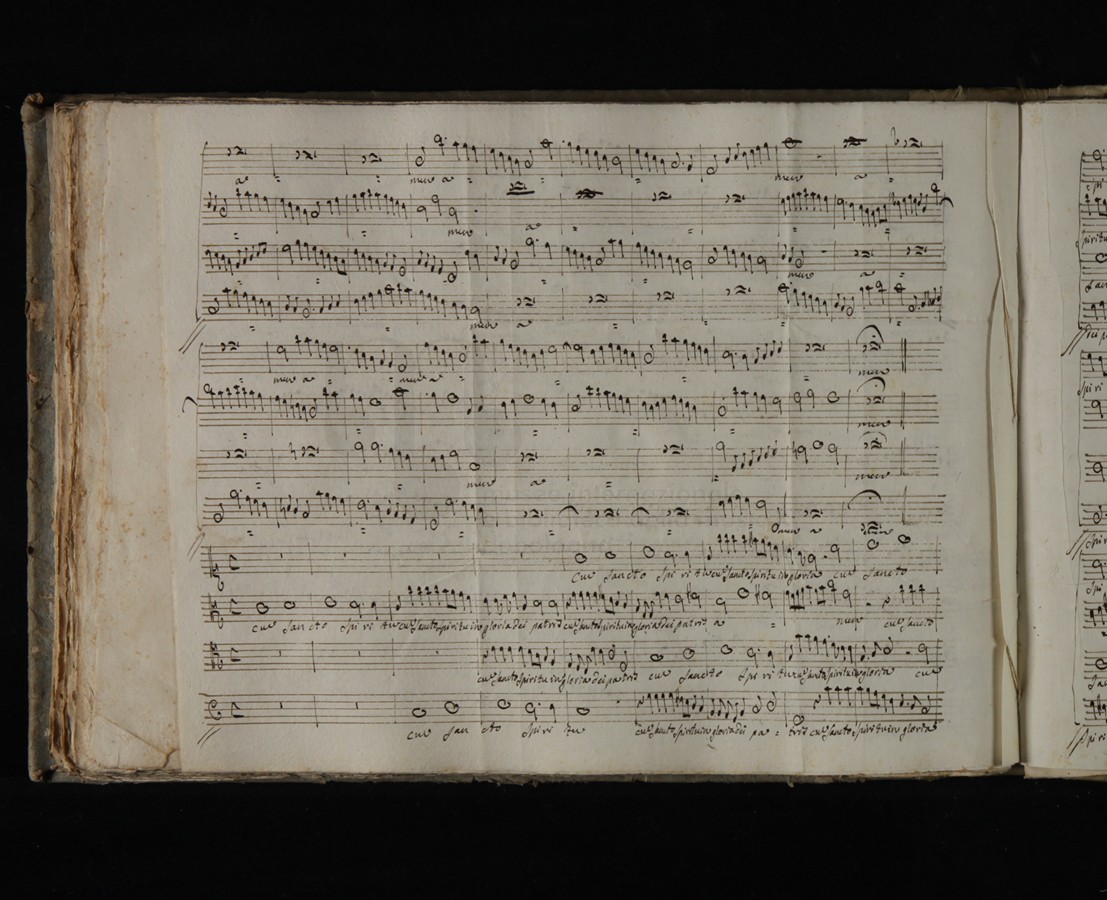 a men a men a
men a
men a
men a
men a men a men
men
men a men
men a men
Cum Sancto Spi ri tu cum Sancto Spiritu in gloria cum Sancto
cum Sancto Spi ri tu cum Sancto Spiritu in gloria Dei patris cum Sancto Spiritu in gloria Dei patris a men cum Sancto
cum Sancto Spiritu in gloria Dei patris cum Sancto Spi ri tu cum Sancto Spiritu in gloria cum
cum San cto Spi ri tu cum Sancto Spiritu in gloria Dei pa tris cum Sancto Spiritu in gloria